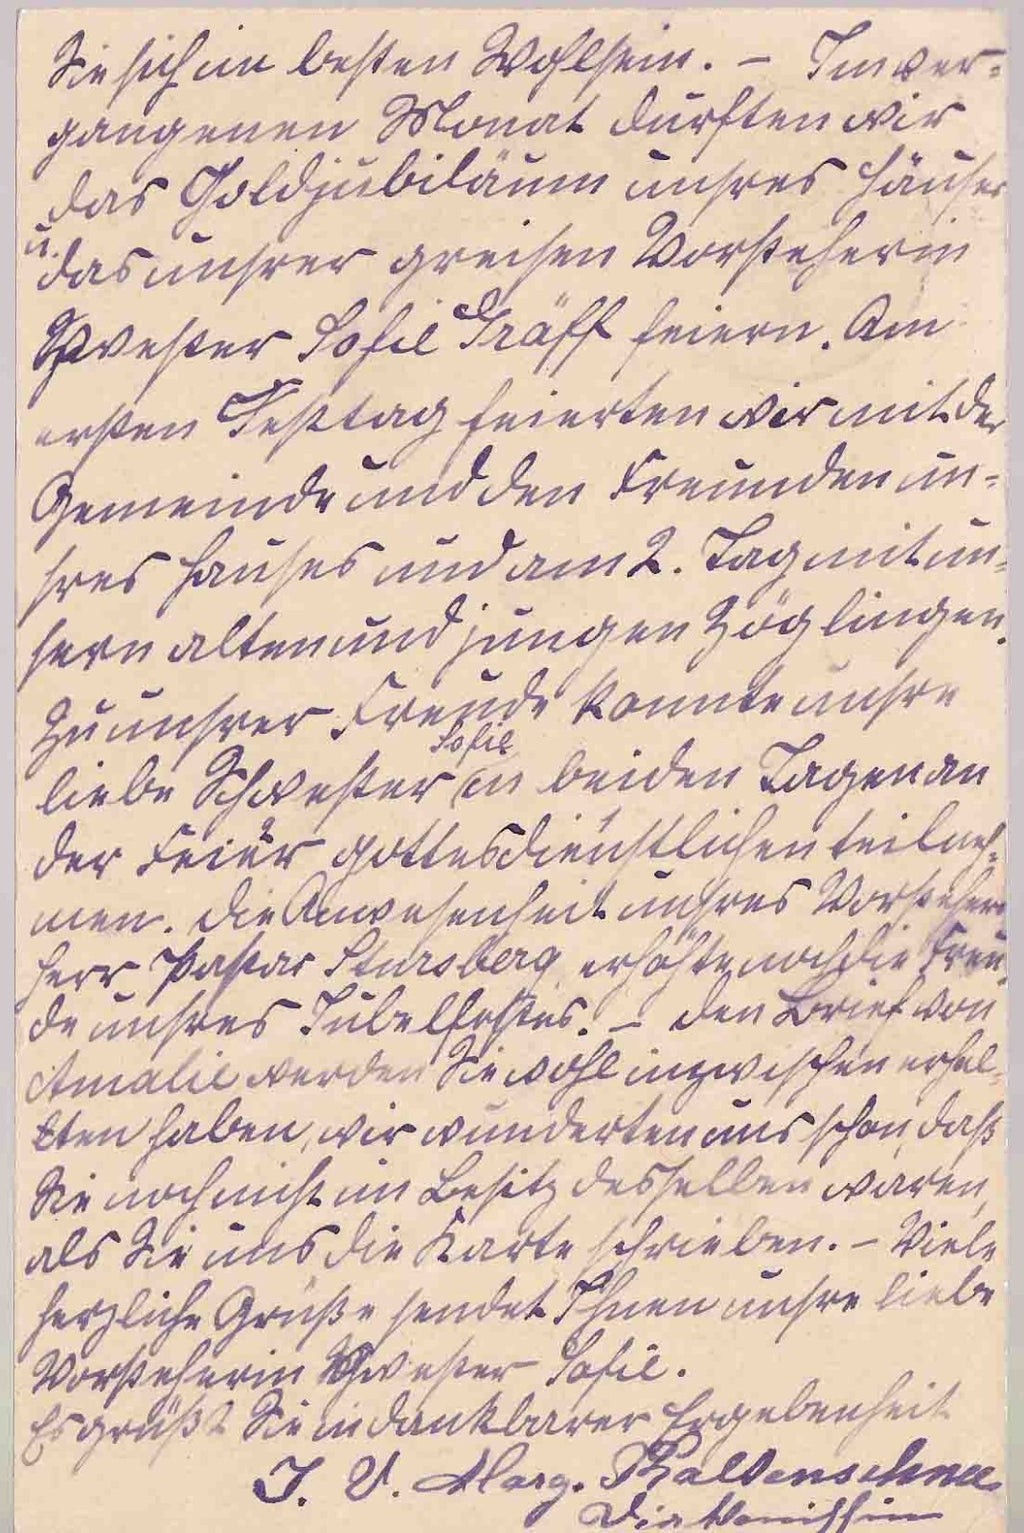 Sie sich im besten Wohlsein. – Im ver-
gangenen Monat durften wir
das Goldjubiläum unsres Hauses
u. das unsrer greisen Vorsteherin
Schwester Sofie Gräff feiern. Am
ersten Festtag feierten wir mit der
Gemeinde und den Freunden un-
sres Hauses und am 2. Tag mit un-
sern alten und jungen Zöglingen.
Zu unsrer Freude konnte unsre
liebe Schwester Sofie an beiden Tagen an
der Feier gottesdienstlichen teilneh-
men. Die Anwesenheit unsres Vorstehers
Herr Pastor Stursberg erhöhte noch die Freu-
de unsres Jubelfestes. – Den Brief von
Amalie werden Sie wohl inzwischen erhal-
tten haben, wir wunderten uns schon, daß
Sie noch nicht im Besitz desselben waren,
als Sie uns die Karte schrieben. – Viele
herzliche Grüße sendet Ihnen unsre liebe
Vorsteherin Schwester Sofie.
Es grüßt Sie in dankbarer Ergebenheit
I. V. Marg.
Diakonissin